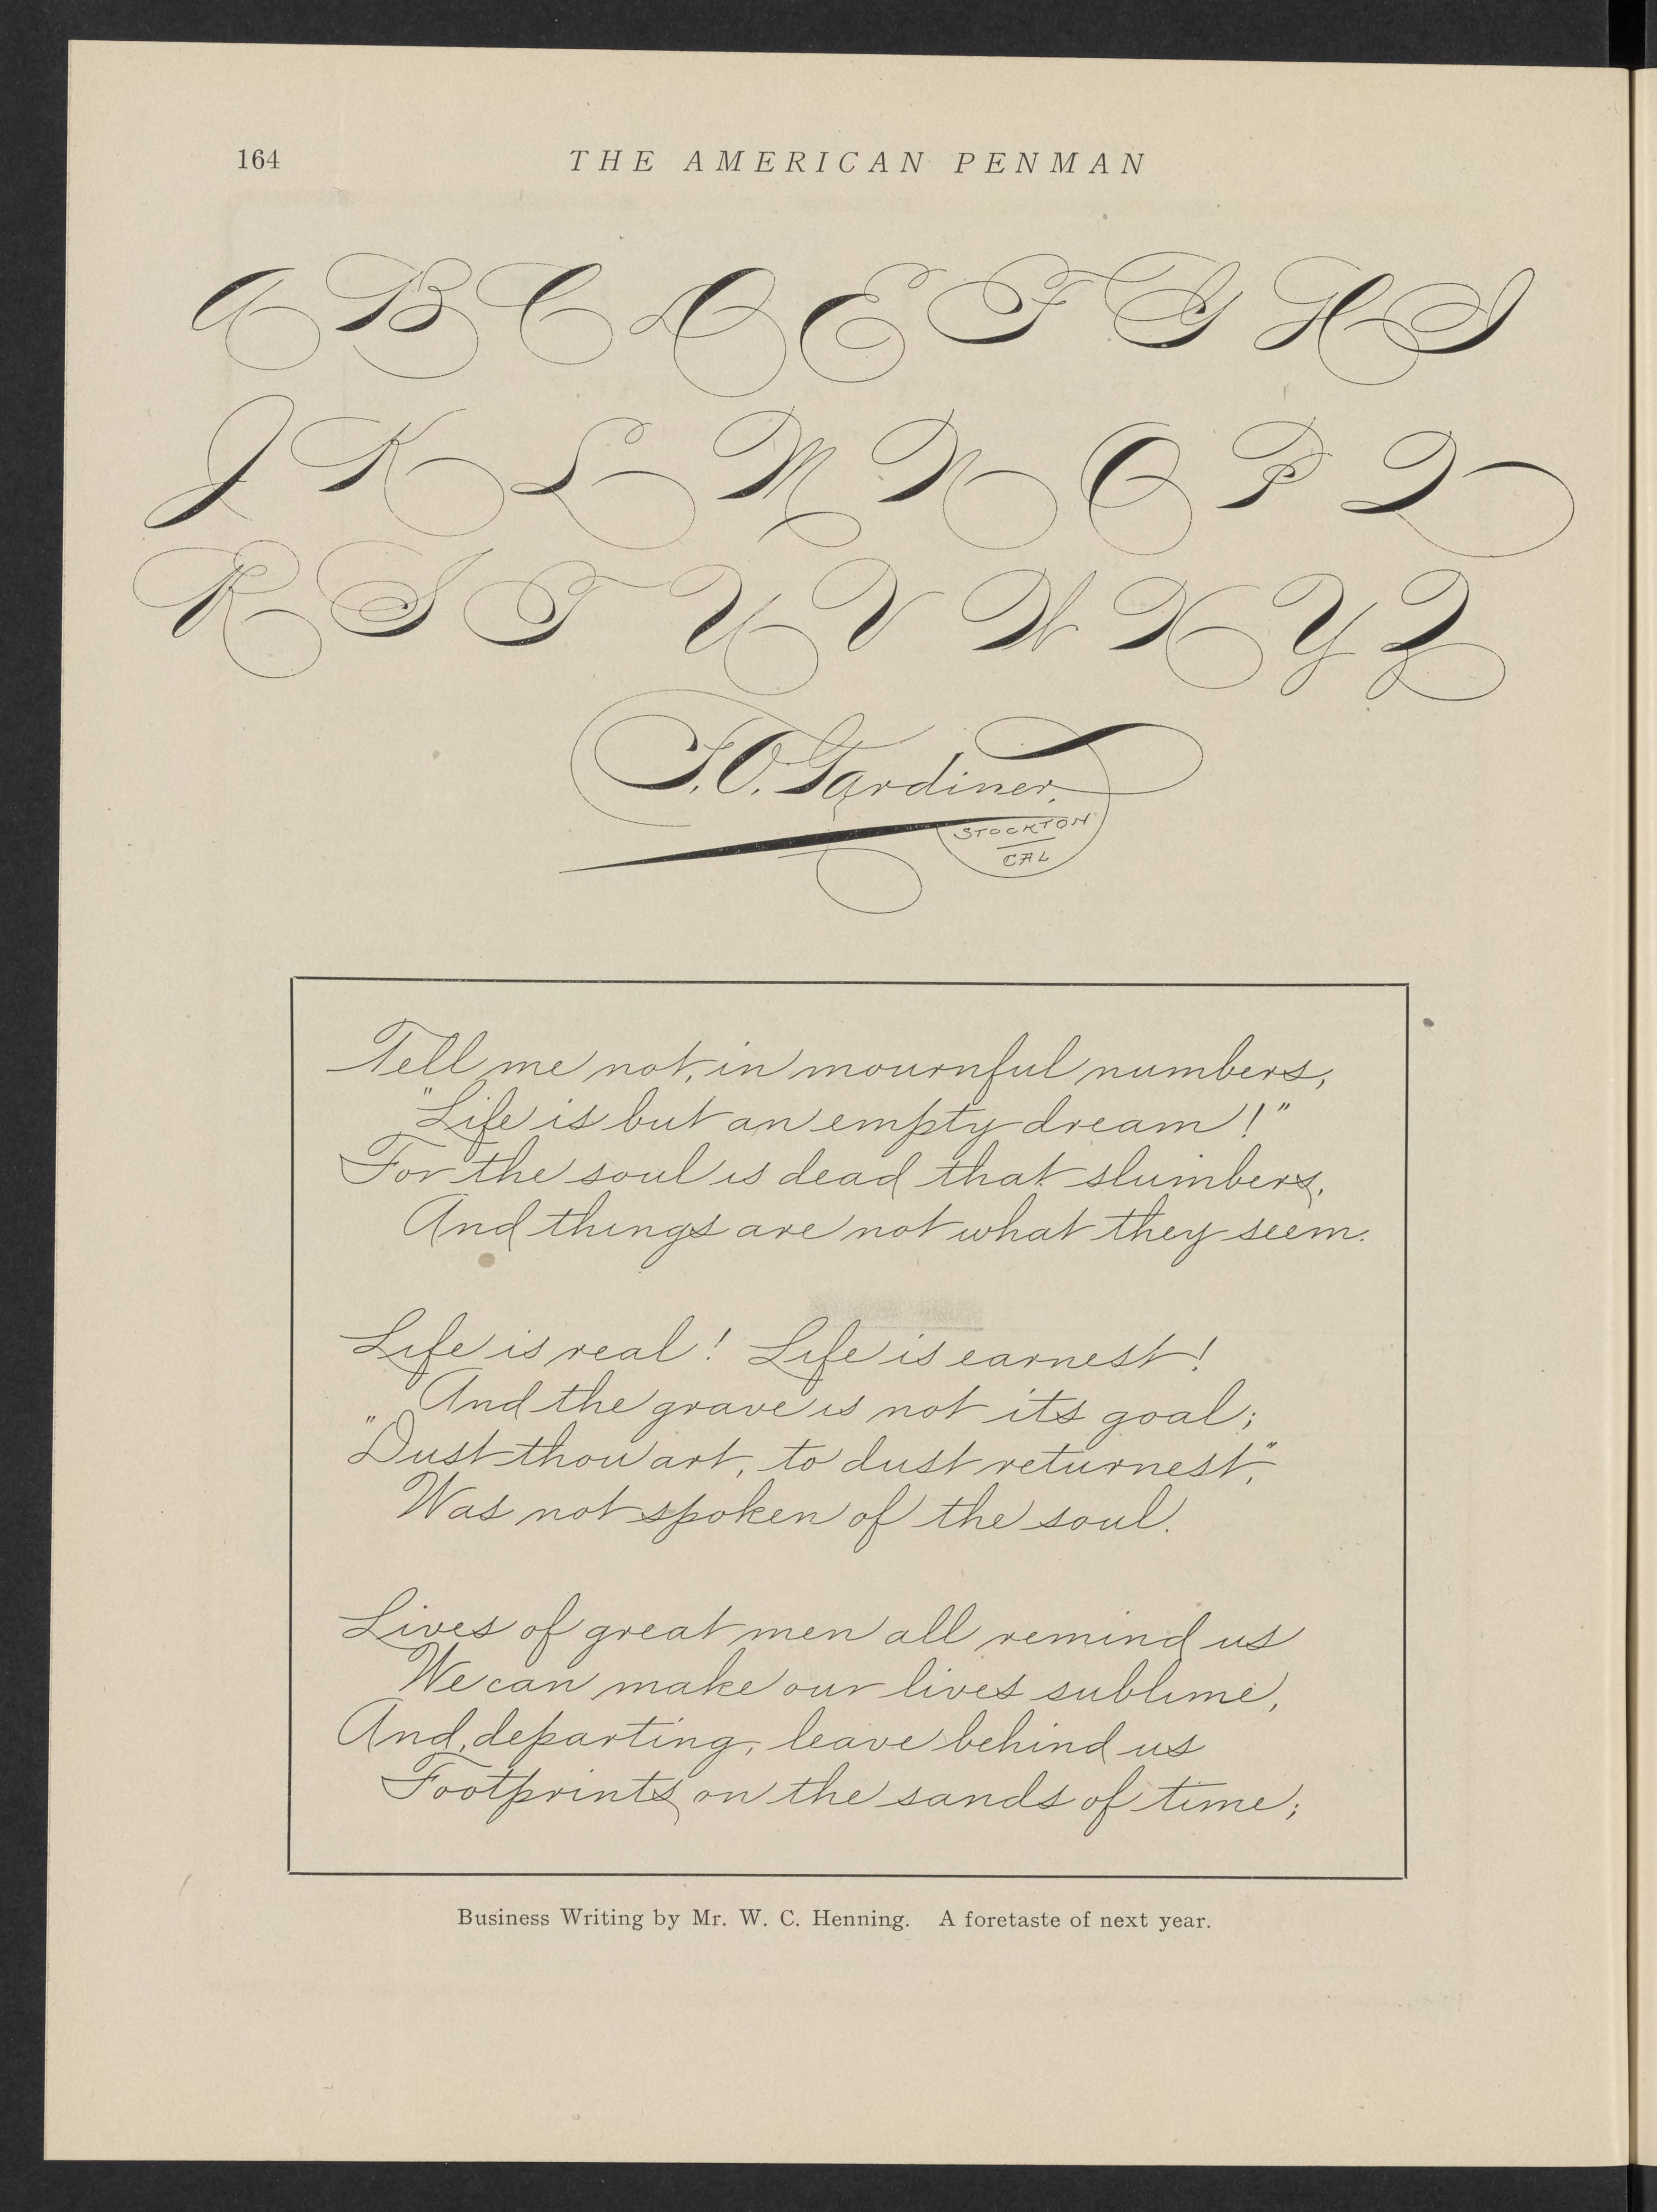 164 THE AMERICAN PENMAN
A B C D E F G H I
J K L M N O P Q
R S T U V W X Y Z
F. O. Gardiner,
STOCKTON
CAL
Tell me not, in mournful numbers,
"Life is but an empty dream!"
For the soul is dead that slumbers,
And things are not what they seem.
Life is real! Life is earnest!
And the grave is not its goal;
"Dust thou art, to dust returnest,"
Was not spoken of the soul.
Lives of great men all remind us
We can make our lives sublime,
And, departing, leave behind us
Footprints on the sands of time;
Business Writing by Mr. W. C. Henning. A foretaste of next year.